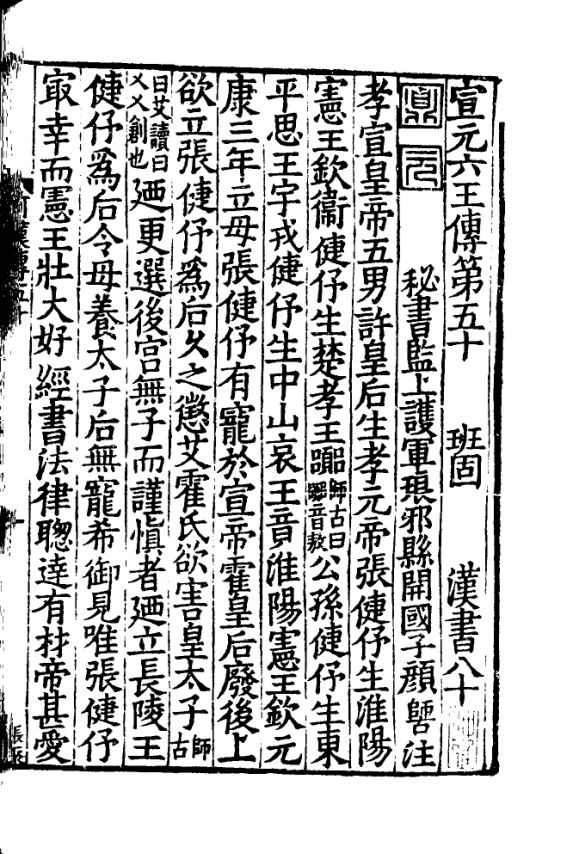 宣元六王傳第五十　班固　漢書八十
秘書監上護軍琅邪縣開國子顔師古注
孝宣皇帝五男許皇后生孝元帝張健伃生淮陽
憲王欽衞健伃生楚孝王嚻師古曰嚻音敖公孫健伃生東
平思王宇戎健伃生中山哀王竟淮陽憲王欽元
康三年立母張健伃有寵於宣帝霍皇后廢後上
欲立張健伃爲后久之懲艾霍氏欲害皇太子師古
曰艾讀曰乂乂創也廼更選後宫無子而謹愼者廼立長陵王
健伃爲后令母養太子后無寵希御見唯張健伃
㝡幸而憲王壯大好經書法律聰逹有材帝甚愛